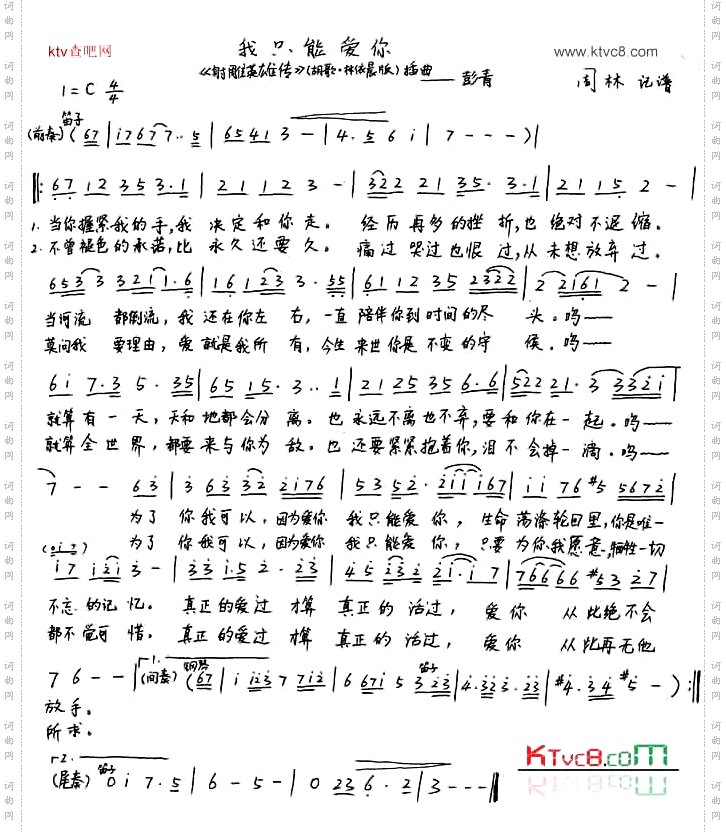 ktv查吧网
我只能爱你
www.ktvc8.com
《射雕英雄传》(胡歌·林依晨版)插曲——彭青
周林 记谱
1=C 4/4
笛子
(前奏) (67|i767 7·· 5|6541 3 -|4. 5 6 i|7 - - -)|
‖: 67 12 35 3·1|21 12 3 -|322 21 35· 3·1|21 15 2 -|
1. 当你握紧我的手,我 决定和你走。 经历再多的挫 折,也 绝对不退缩。
2. 不曾褪色的承诺,比 永久还要久。 痛过哭过也恨 过,从 未想放弃过。
653 3 3211·6|161 123 3·55|61 12 35 2322|2 2161 2 -|
当河流 都倒流,我 还在你左 右,一直 陪伴你到时间的尽 头。呜——
莫问我 要理由,爱 就是我所 有,今生 来世你是不变的守 候。呜——
6i 7·3 5·35|65 15·3·· 1|21 25 35 6·6|522 21·3 332i|
就算有一天,天和 地都会分 离。也 永远不离也不弃,要 和你在一 起。呜——
就算全世界,都要 来与你为 敌。也 还要紧紧抱着你,泪 不会掉一 滴。呜——
7 - - 63|3 63 32 2i76|53 52· 2iii67|ii 76 #5 5672|
为了 你我可以,因为爱你 我只能爱 你, 生命 荡涤轮回里,你是唯一
为了 你我可以,因为爱你 我只能爱 你, 只要 为你我愿意,牺牲一切
(0i7)
i7 i2i 3 -|33 i·5 2·23|45 232 2i·i7|76666 #53 27|
不忘的记忆。 真正的爱过 才算 真正的 活过, 爱你 从此绝不会
都不觉可 惜。 真正的爱过 才算 真正的 活过, 爱你 从此再无他
76 - -|1. (间奏) 钢琴 (67|i i23 7 7i2|6 67i 5 笛子 3 23|4·323·23|#4·34 #5 -):‖
放手。
所求。
2.
(尾奏) 笛子 0 i 7·5|6 - 5 -|0 23 6·2|3 - - -‖
KTvc8.com
词曲网